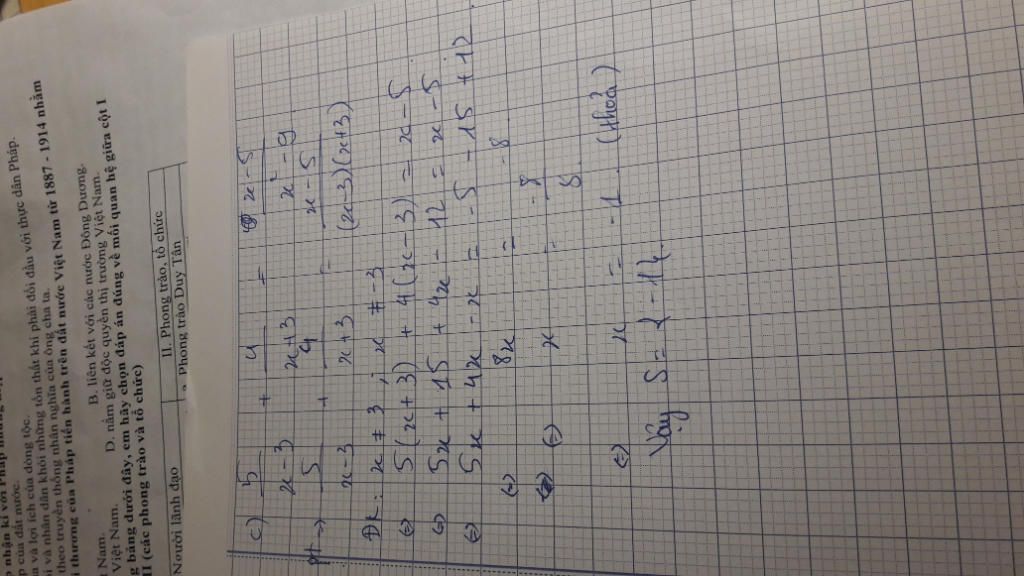 p nhận kí với Pháp
p của đất nước.
a và lợi ích của dòng tộc.
i và nhân dân khỏi những tổn thất khi phải đối đầu với thực dân Pháp.
theo truyền thống nhân nghĩa của ông cha ta.
i thương của Pháp tiến hành trên đất nước Việt Nam từ 1887 - 1914 nhằm
t Nam. B. liên kết với các nước Đông Dương.
Việt Nam. D. nắm giữ độc quyền thị trường Việt Nam.
g bảng dưới đây, em hãy chọn đáp án đúng về mối quan hệ giữa cột I
II (các phong trào và tổ chức)
Người lãnh đạo II. Phong trào, tổ chức
a. Phong trào Duy Tân
c) 5/(x-3) + 4/(x+3) = (x-5)/(x²-9)
pt → 5/(x-3) + 4/(x+3) = (x-5)/((x-3)(x+3))
ĐK: x ≠ 3 ; x ≠ -3
⇔ 5(x+3) + 4(x-3) = x-5
⇔ 5x + 15 + 4x - 12 = x - 5
⇔ 5x + 4x - x = -5 - 15 + 12
⇔ 8x = -8
⇔ x = -8/8
⇔ x = -1 (thỏa)
Vậy S = {-1}.